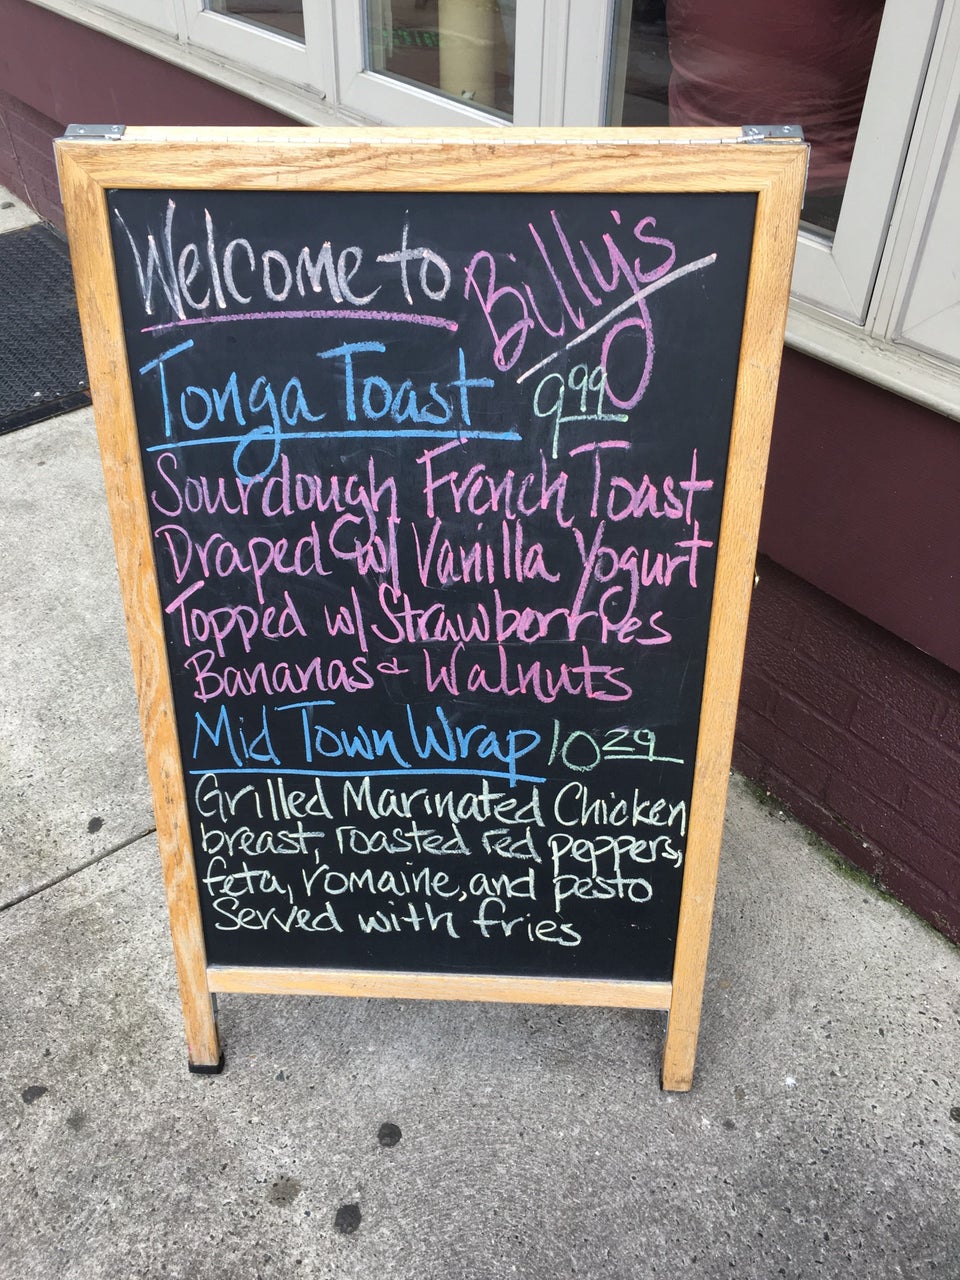 Welcome to Billy's
Tonga Toast 9.99
Sourdough French Toast
Draped w/ Vanilla Yogurt
Topped w/ Strawberries
Bananas & Walnuts
Mid Town Wrap 10.29
Grilled Marinated Chicken
breast, roasted red peppers,
feta, romaine, and pesto
Served with fries